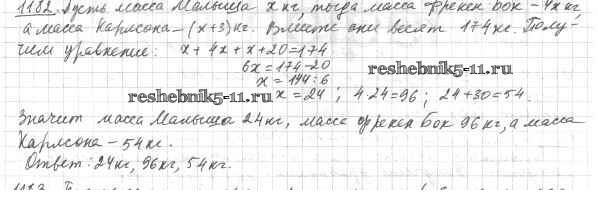 1182. Пусть масса Малыша x кг, тогда масса Фрекен Бок – 4x кг,
а масса Карлсона – (x+3) кг. Вместе они весят 174 кг. Полу-
чим уравнение: x + 4x + x + 20 = 174
6x = 174 - 20
x = 144 : 6
reshebnik5-11.ru
reshebnik5-11.ru x = 24 ; 4·24=96 ; 24+30=54.
Значит масса Малыша 24 кг, масса Фрекен Бок 96 кг, а масса
Карлсона – 54 кг.
Ответ: 24 кг, 96 кг, 54 кг.